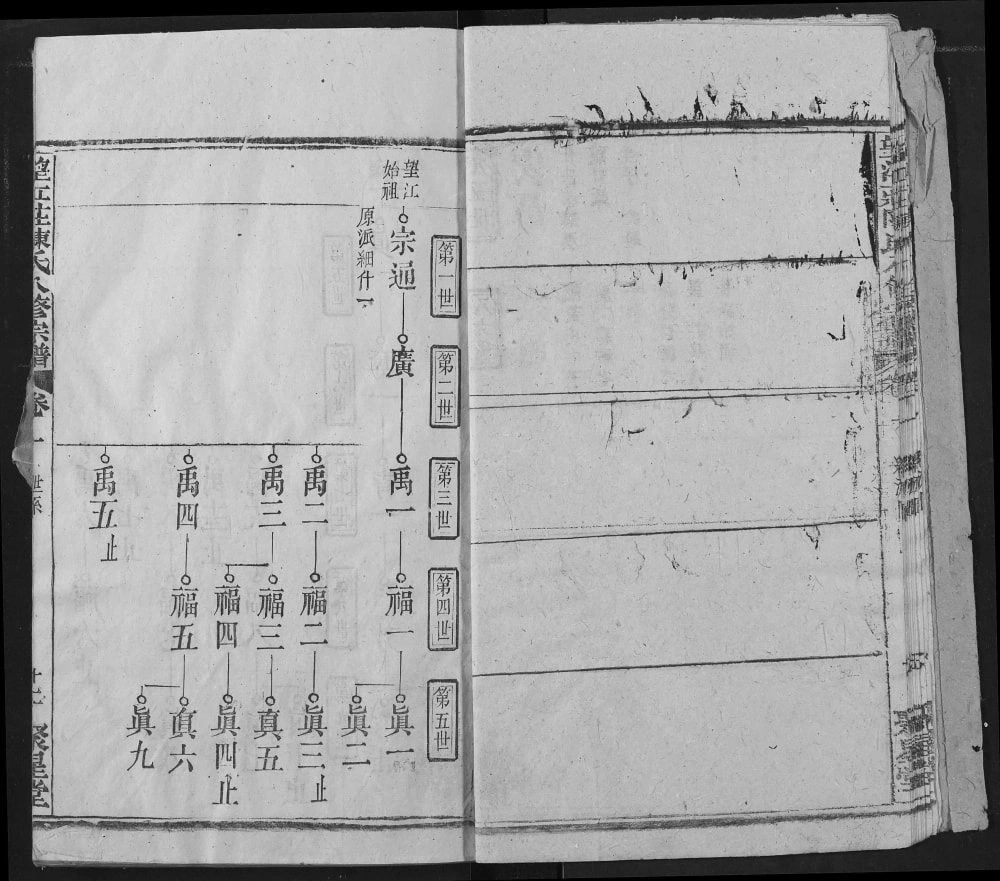 第一世
第二世
第三世
第四世
第五世
望江
始祖
宗通
廣
禹一
福一
眞一
眞二
原派細什一
禹二
福二
眞三止
禹三
福三
真五
福四
眞四止
禹四
福五
真六
眞九
禹五止
望江庄陳氏八修宗譜
卷一
世系
聚星堂